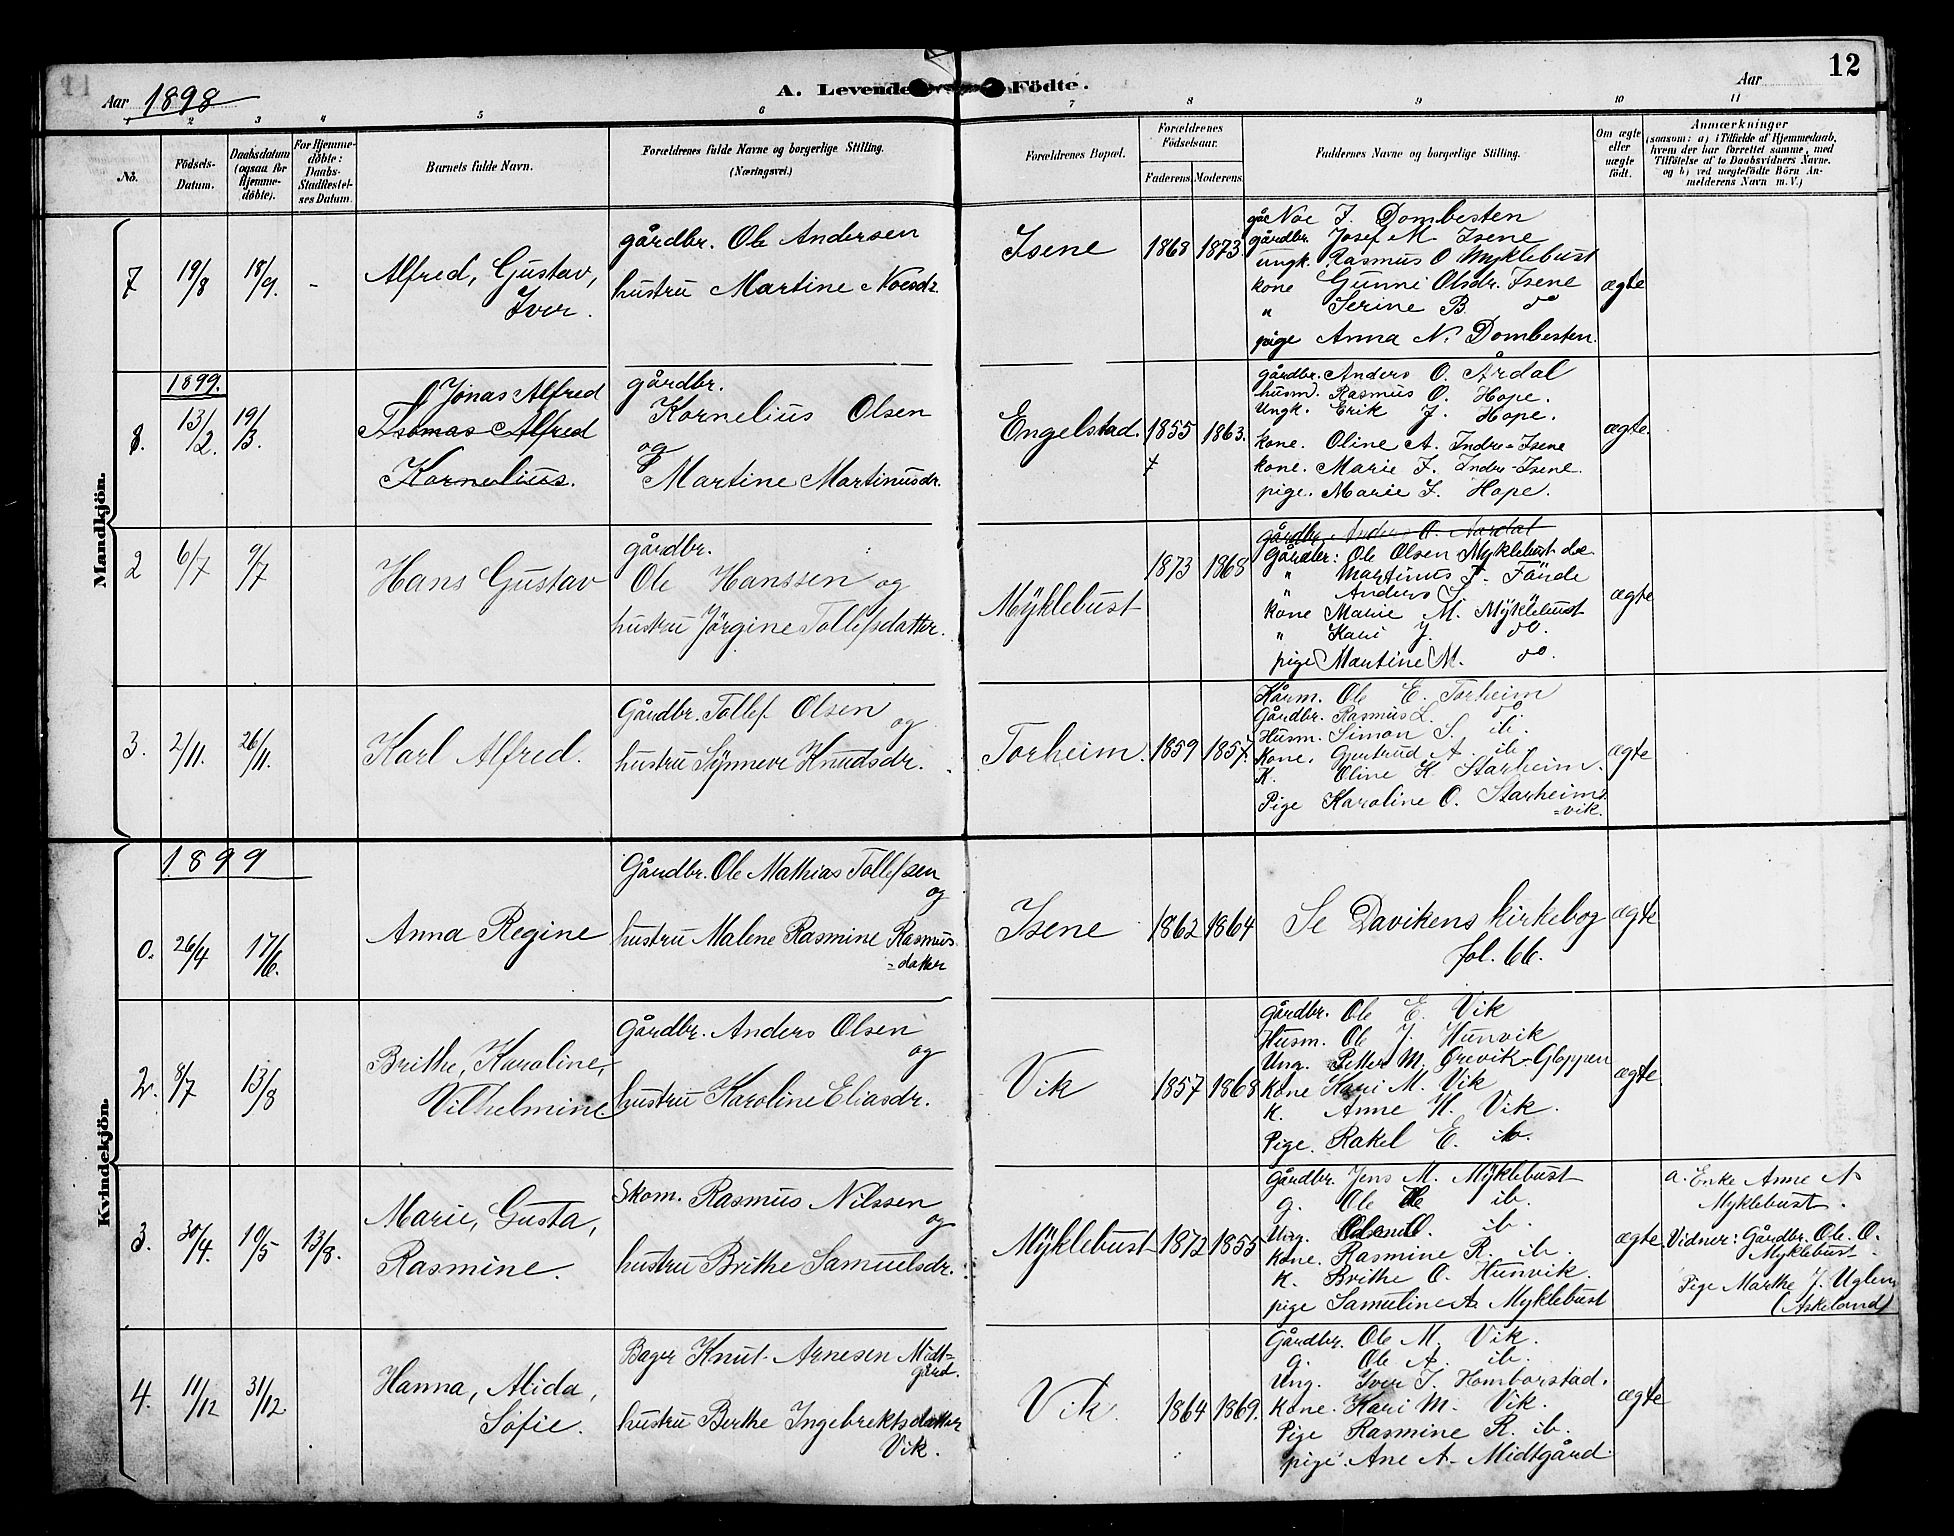 11
12
Aar 1898
A. Levende Födte.
Aar
1 2 3 4 5 6 7 8 9 10 11
No.
Födsels-Datum.
Daabsdatum (ogsaa for Hjemmedøbte).
For Hjemmedøbte: Daabs-Stadfæstelses Datum.
Barnets fulde Navn.
Forældrenes fulde Navne og borgerlige Stilling. (Næringsvei.)
Forældrenes Bopæl.
Forældrenes Födselsaar.
Faderens. Moderens.
Faddernes Navne og borgerlige Stilling.
Om ægte eller uægte födt.
Anmærkninger
(saasom: a) i Tilfælde af Hjemmedaab, hvem der har forrettet samme, med Tilføielse af to Daabsvidners Navne. og b) ved uægtefödte Börn Anmelderens Navn m. V.)
Mandkjön.
7 19/8 18/9. -
Alfred, Gustav,
Iver.
gårdbr. Ole Andersen
hustru Martine Noesdr.
Isene 1868 1873.
Noe J. Dombesten
gårdbr. Josef M. Isene
ungk. Rasmus O Myklebust
kone Gunni Olsdr. Isene
" Serine B. do
pige Anna N. Dombesten.
ægte
1899.
1. 13/2. 19/3.
Jonas Alfred
Thomas Alfred
Kornelius.
gårdbr.
Kornelius Olsen
og
Martine Martinusdr.
Engelstad. 1855 1863.
gårdbr. Anders O. Årdal
husm. Rasmus O. Hope.
Ungk. Erik J. Hope.
kone. Oline A. Indre-Isene
kone. Marie J. Indre-Isene.
pige. Marie J. Hope.
ægte.
2 6/7 9/7
Hans Gustav
gårdbr.
Ole Hanssen og
hustru Jörgine Tollefsdatter.
Myklebust 1873 1868
gårdbr. Anders O. Aardal
Gårdbr: Ole Olsen Myklebust
" Martinus J. Fände
" Anders
kone Marie M. Myklebust
" Kari J. do.
pige Martine M. do.
ægte
3. 2/11. 26/11.
Karl Alfred.
Gårdbr. Tollef Olsen og
hustru Synneve Knudsdr.
Torheim. 1859 1857.
Kårm. Ole E. Torheim
Gårdbr. Rasmus L. do
Husm. Simon S. ib.
Kone. Gjertrud A. ib
K. Oline K. Starheim.
Pige Karoline O. Starheims
=vik.
ægte
Kvindekjön.
1899
26/4 17/6.
Anna Regine
Gårdbr. Ole Mathias Tollefsen
og
hustru Malene Rasmine Rasmus
=datter
Isene 1862 1864
Se Davikens kirkebog
fol. 66.
ægte
2. 8/7 13/8
Brithe, Karoline,
Vilhelmine.
gårdbr. Anders Olsen
og
hustru Karoline Eliasdr.
Vik 1857 1868
gårdbr. Ole E. Vik
Husm. Ole J. Hunvik
Ung. Petter M. Orevik-Gloppen
Kone Kari M. Vik
K. Anne H. Vik.
Pige. Rakel E. ib.
ægte
3. 30/4. 10/5 13/8.
Marie, Gusta,
Rasmine.
Skom. Rasmus Nilssen
og
hustru Brithe Samuelsdr.
Myklebust 1872 1855
Gårdbr. Jens M. Myklebust
g. Ole ib.
Ung. ib.
Kone. Rasmine R. ib.
K. Brithe O. Hunvik.
pige Samuline A. Myklebust
ægte.
a. Enke Anne A
Myklebust.
Vidner: Gårdbr. Ole. O.
Myklebust.
Pige Marthe J. Uglen
(Askeland)
4. 11/12 31/12.
Hanna, Alida,
Sofie.
Bager Knut Arnesen Midt=
gård.
hustru Berthe Ingebrektsdatter
Vik.
Vik. 1864 1869.
Gårdbr. Ole M. Vik.
g. Ole A. ib.
Ung. Iver J. Homborstad.
Kone. Kari M. Vik.
Pige Rasmine R. ib.
pige. Ane A. Midtgård.
ægte